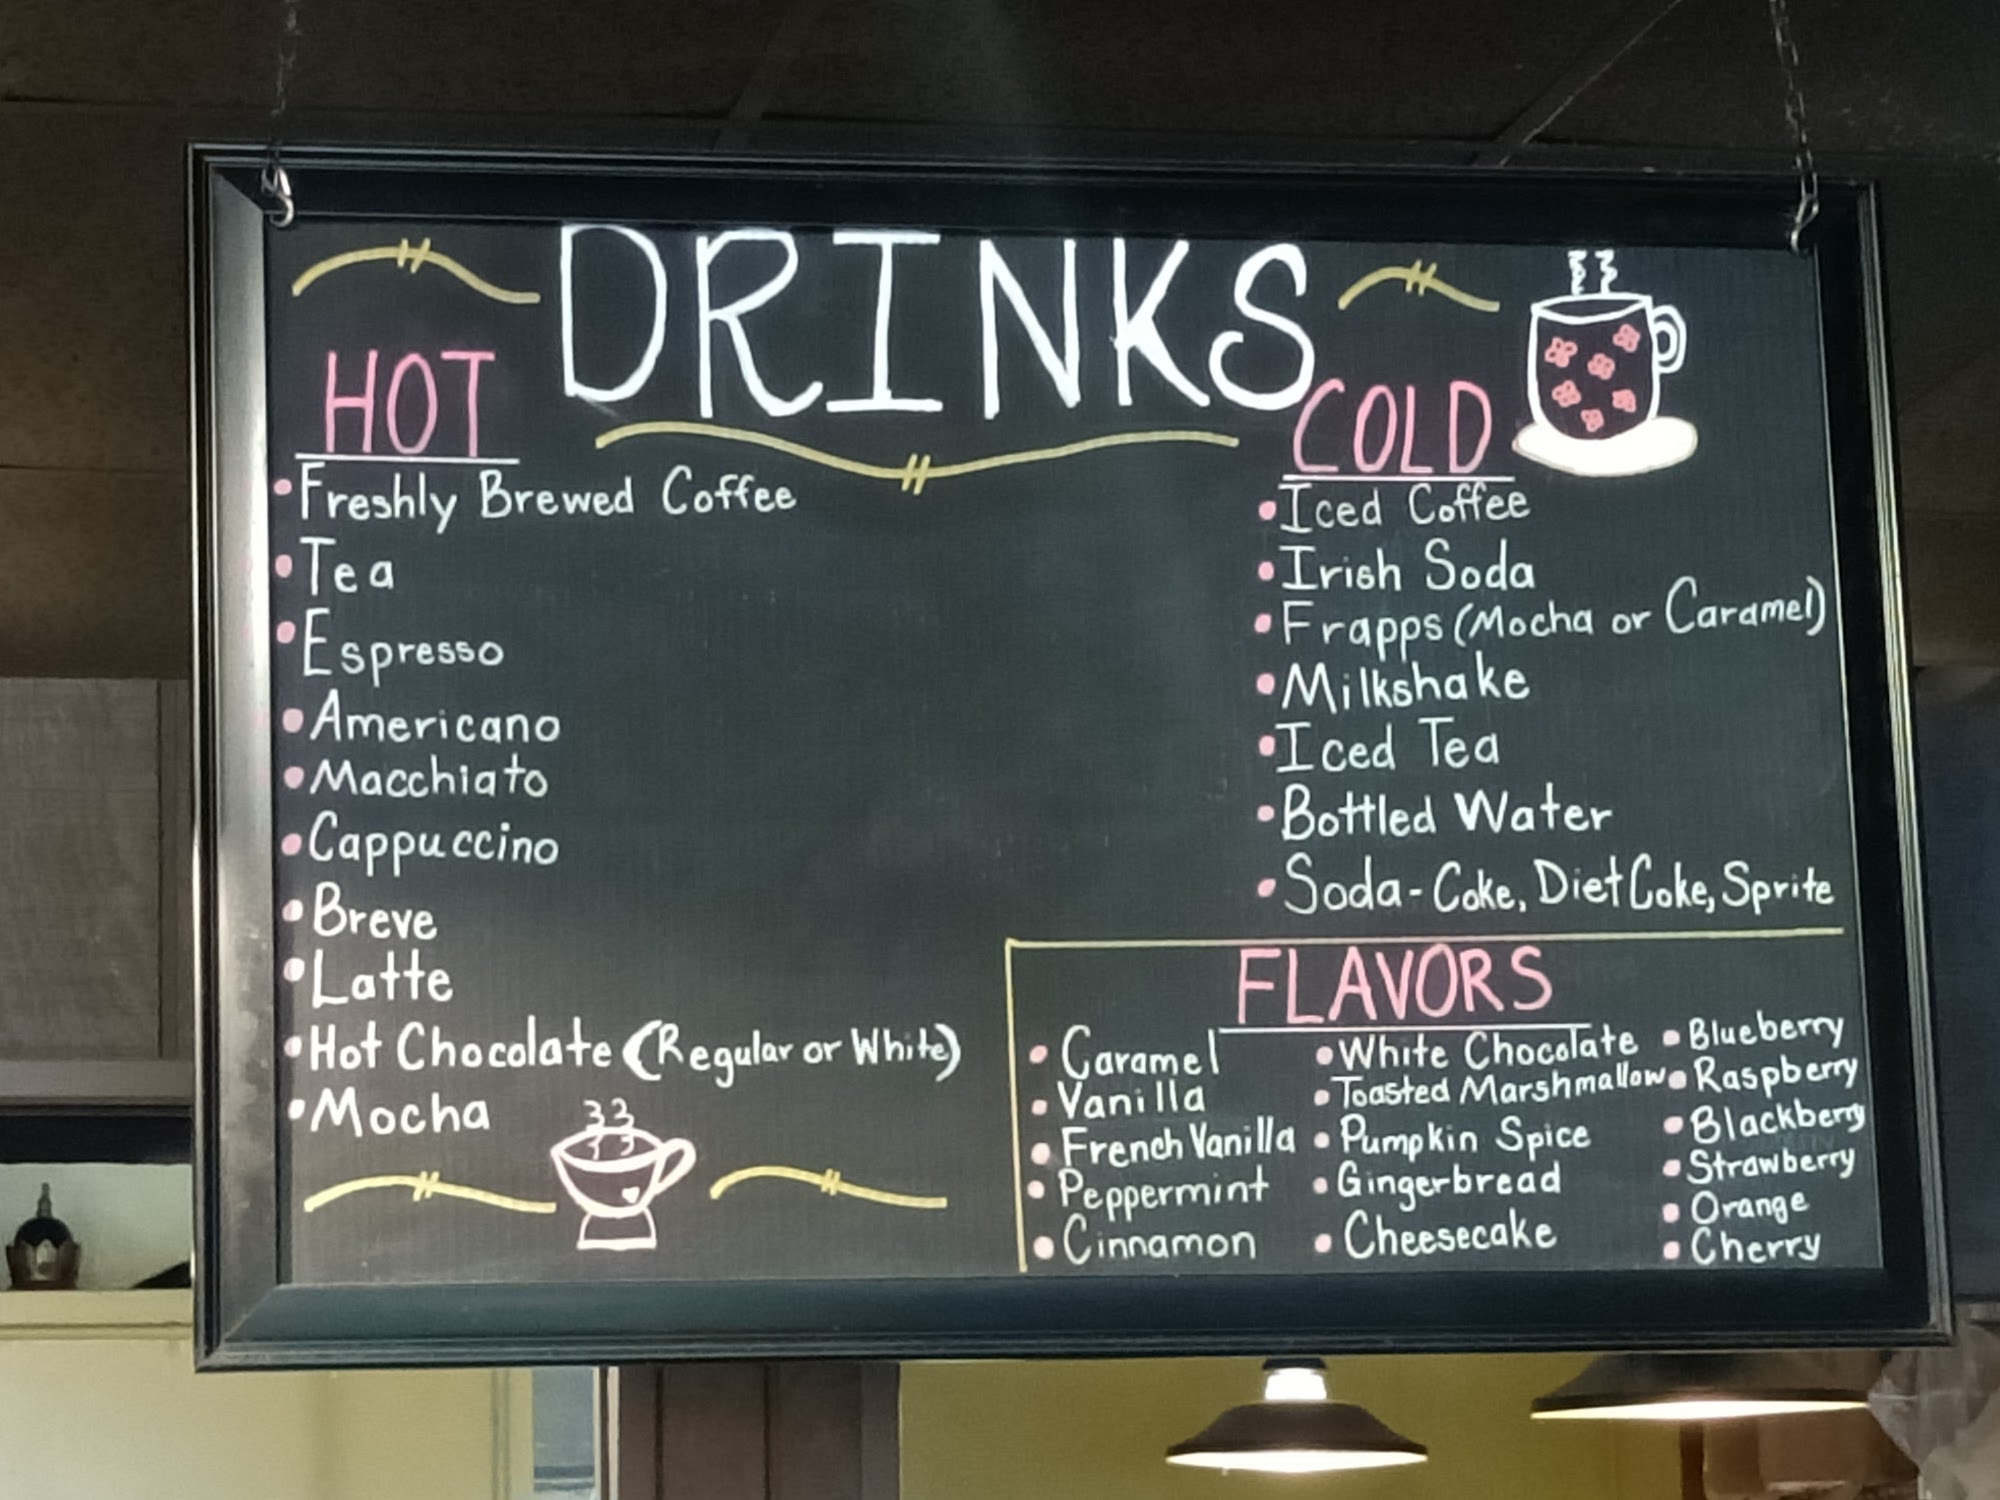 DRINKS
HOT
•Freshly Brewed Coffee
•Tea
•Espresso
•Americano
•Macchiato
•Cappuccino
•Breve
•Latte
•Hot Chocolate (Regular or White)
•Mocha
COLD
•Iced Coffee
•Irish Soda
•Frapps (Mocha or Caramel)
•Milkshake
•Iced Tea
•Bottled Water
•Soda - Coke, Diet Coke, Sprite
FLAVORS
•Caramel
•Vanilla
•French Vanilla
•Peppermint
•Cinnamon
•White Chocolate
•Toasted Marshmallow
•Pumpkin Spice
•Gingerbread
•Cheesecake
•Blueberry
•Raspberry
•Blackberry
•Strawberry
•Orange
•Cherry